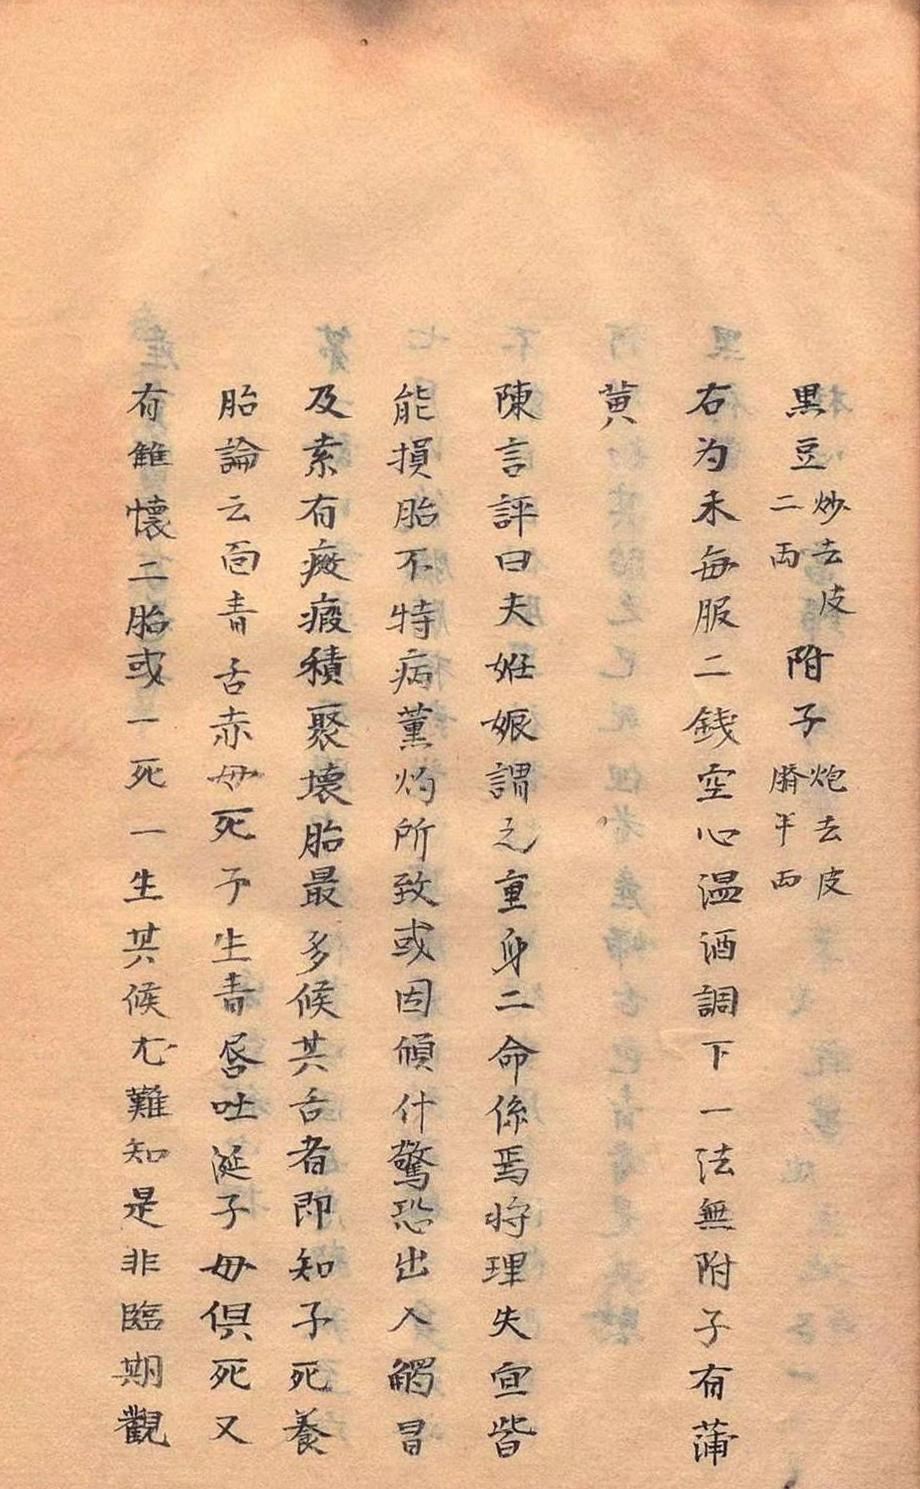 黒豆炒去皮二両附子炮去皮臍半両
右为末每服二錢空心温酒調下一法無附子有蒲
黄
陳言評曰夫姙娠謂之重身二命係焉将理失宜皆
能損胎不特病薫灼所致或因傾什驚恐出入觸冒
及素有癥瘕積聚壊胎最多候其舌者即知子死養
胎論云面青舌赤母死子生青唇吐涎子母俱死又
有雖懐二胎或一死一生其候尤難知是非臨期觀